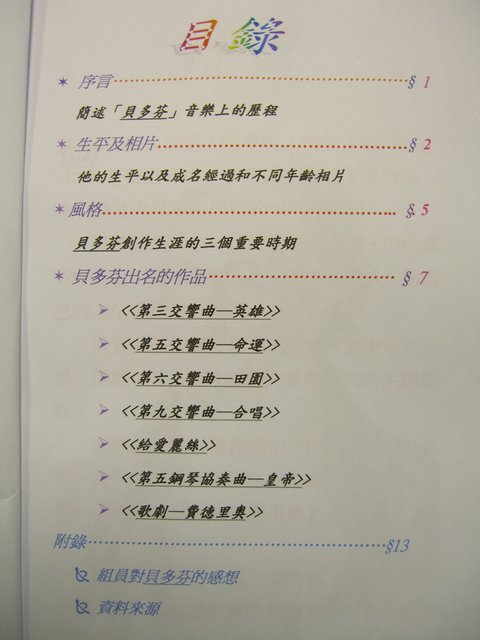 目錄
✶ 序言⋯⋯⋯⋯⋯⋯⋯⋯⋯⋯⋯⋯§ 1
簡述「貝多芬」音樂上的歷程
✶ 生平及相片⋯⋯⋯⋯⋯⋯⋯⋯⋯⋯§ 2
他的生平以及成名經過和不同年齡相片
✶ 風格⋯⋯⋯⋯⋯⋯⋯⋯⋯⋯⋯⋯§. 5
貝多芬創作生涯的三個重要時期
✶ 貝多芬出名的作品⋯⋯⋯⋯⋯⋯⋯§ 7
➢ <<第三交響曲—英雄>>
➢ <<第五交響曲—命運>>
➢ <<第六交響曲—田園>>
➢ <<第九交響曲—合唱>>
➢ <<給愛麗絲>>
➢ <<第五鋼琴協奏曲—皇帝>>
➢ <<歌劇—費德里奧>>
附錄⋯⋯⋯⋯⋯⋯⋯⋯⋯⋯⋯⋯§13
組員對貝多芬的感想
資料來源